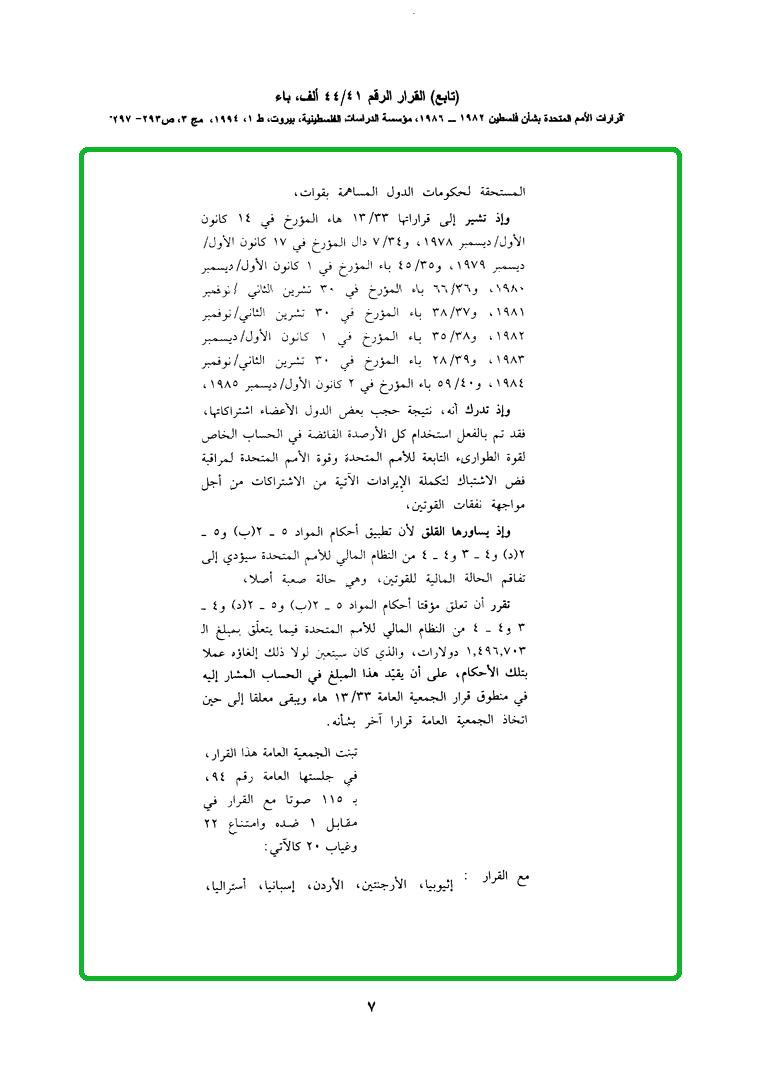 (تابع) القرار الرقم ٤٤/٤١ ألف، باء
"قرارات الأمم المتحدة بشأن فلسطين ١٩٨٢ – ١٩٨٦، مؤسسة الدراسات الفلسطينية، بيروت، ط ١، ١٩٩٤، مج ٣، ص ٢٩٣- ٢٩٧"
المستحقة لحكومات الدول المساهمة بقوات،
وإذ تشير إلى قراراتها ١٣/٣٣ هاء المؤرخ في ١٤ كانون
الأول/ديسمبر ١٩٧٨، و٧/٣٤ دال المؤرخ في ١٧ كانون الأول/
ديسمبر ١٩٧٩، و٤٥/٣٥ باء المؤرخ في ١ كانون الأول/ديسمبر
١٩٨٠، و٦٦/٣٦ باء المؤرخ في ٣٠ تشرين الثاني /نوفمبر
١٩٨١، و٣٨/٣٧ باء المؤرخ في ٣٠ تشرين الثاني/نوفمبر
١٩٨٢، و٣٥/٣٨ باء المؤرخ في ١ كانون الأول/ديسمبر
١٩٨٣، و٢٨/٣٩ باء المؤرخ في ٣٠ تشرين الثاني/نوفمبر
١٩٨٤، و٥٩/٤٠ باء المؤرخ في ٢ كانون الأول/ديسمبر ١٩٨٥،
وإذ تدرك أنه، نتيجة حجب بعض الدول الأعضاء اشتراكاتها،
فقد تم بالفعل استخدام كل الأرصدة الفائضة في الحساب الخاص
لقوة الطوارىء التابعة للأمم المتحدة وقوة الأمم المتحدة لمراقبة
فض الاشتباك لتكملة الإيرادات الآتية من الاشتراكات من أجل
مواجهة نفقات القوتين،
وإذ يساورها القلق لأن تطبيق أحكام المواد ٥ – ٢(ب) و٥ –
٢(د) و٤ – ٣ و٤ – ٤ من النظام المالي للأمم المتحدة سيؤدي إلى
تفاقم الحالة المالية للقوتين، وهي حالة صعبة أصلا،
تقرر أن تعلق مؤقتا أحكام المواد ٥ – ٢(ب) و٥ – ٢(د) و٤ –
٣ و٤ – ٤ من النظام المالي للأمم المتحدة فيما يتعلّق بمبلغ الـ
١,٤٩٦,٧٠٣ دولارات، والذي كان سيتعين لولا ذلك إلغاؤه عملا
بتلك الأحكام، على أن يقيّد هذا المبلغ في الحساب المشار إليه
في منطوق قرار الجمعية العامة ١٣/٣٣ هاء ويبقى معلقا إلى حين
اتخاذ الجمعية العامة قرارا آخر بشأنه.
تبنت الجمعية العامة هذا القرار،
في جلستها العامة رقم ٩٤،
بـ ١١٥ صوتا مع القرار في
مقابل ١ ضده وامتناع ٢٢
وغياب ٢٠ كالآتي:
مع القرار : إثيوبيا، الأرجنتين، الأردن، إسبانيا، أستراليا،
٧